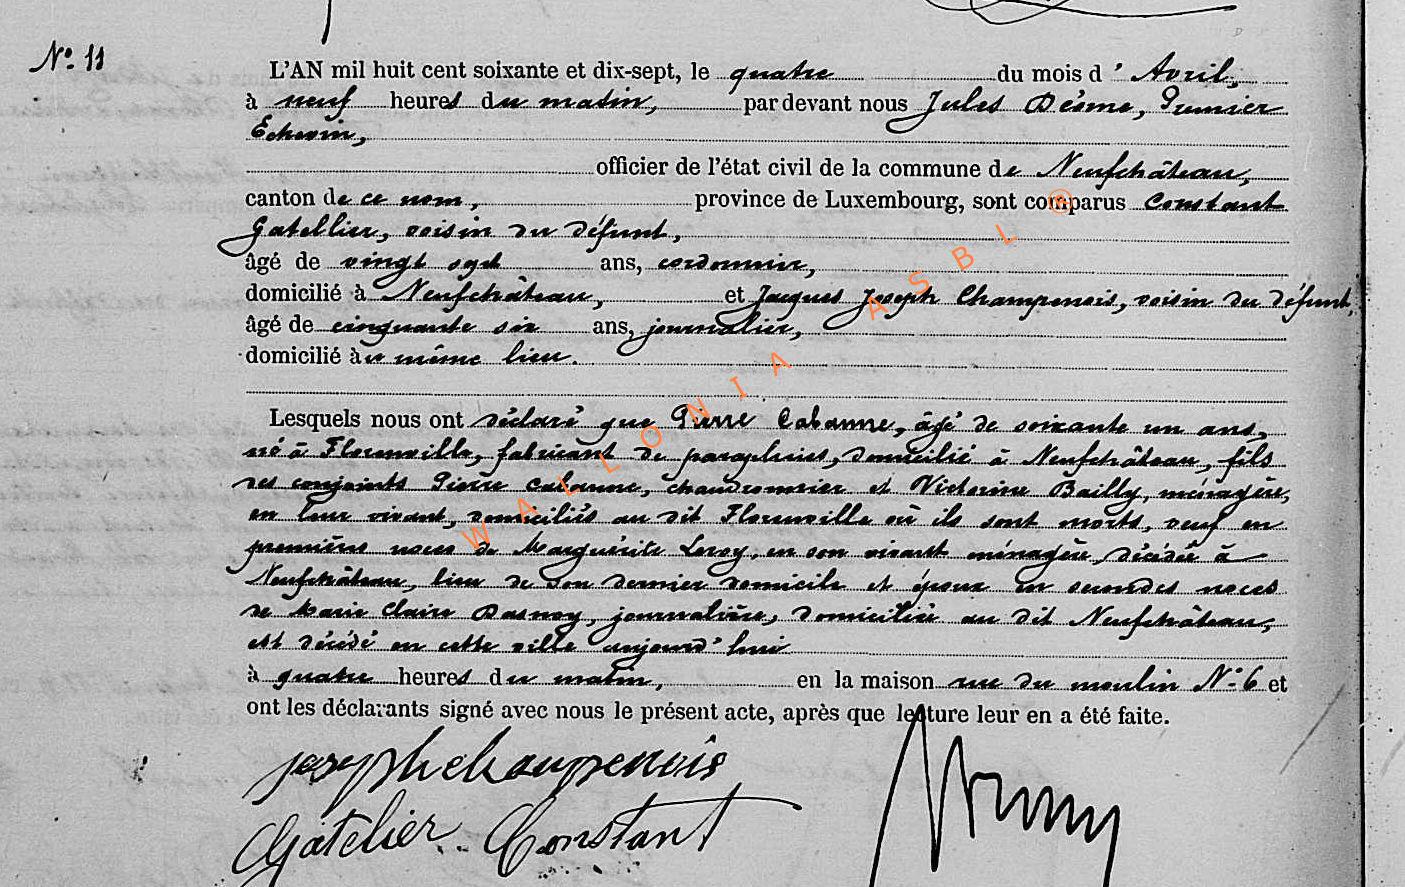 N° 11
L'AN mil huit cent soixante et dix-sept, le quatre du mois d' Avril,
à neuf heures du matin, par devant nous Jules Désme, Premier
Echevin,
officier de l'état civil de la commune de Neufchâteau,
canton de ce nom, province de Luxembourg, sont comparus Constant
Gatellier, voisin du défunt,
âgé de vingt sept ans, cordonnier,
domicilié à Neufchâteau, et Jacques Joseph Champenois, voisin du défunt,
âgé de cinquante six ans, journalier,
domicilié au même lieu.
Lesquels nous ont déclaré que Pierre Cabanne, âgé de soixante un ans,
né à Florenville, fabricant de parapluies, domicilié à Neufchâteau, fils
des conjoints Pierre Cabanne, chaudronnier et Victorine Bailly, ménagère,
en leur vivant, domiciliés au dit Florenville où ils sont morts, veuf en
premières noces de Marguérite Leroy, en son vivant ménagère, décédée à
Neufchâteau, lieu de son dernier domicile et époux en secondes noces
de Marie Claire Dasnoy, journalière, domiciliée au dit Neufchâteau,
est décédé en cette ville aujourd'hui
à quatre heures du matin, en la maison rue du moulin N° 6 et
ont les déclarants signé avec nous le présent acte, après que lecture leur en a été faite.
joseph champenois
Gatelier Constant
WALLONIA ASBL ®